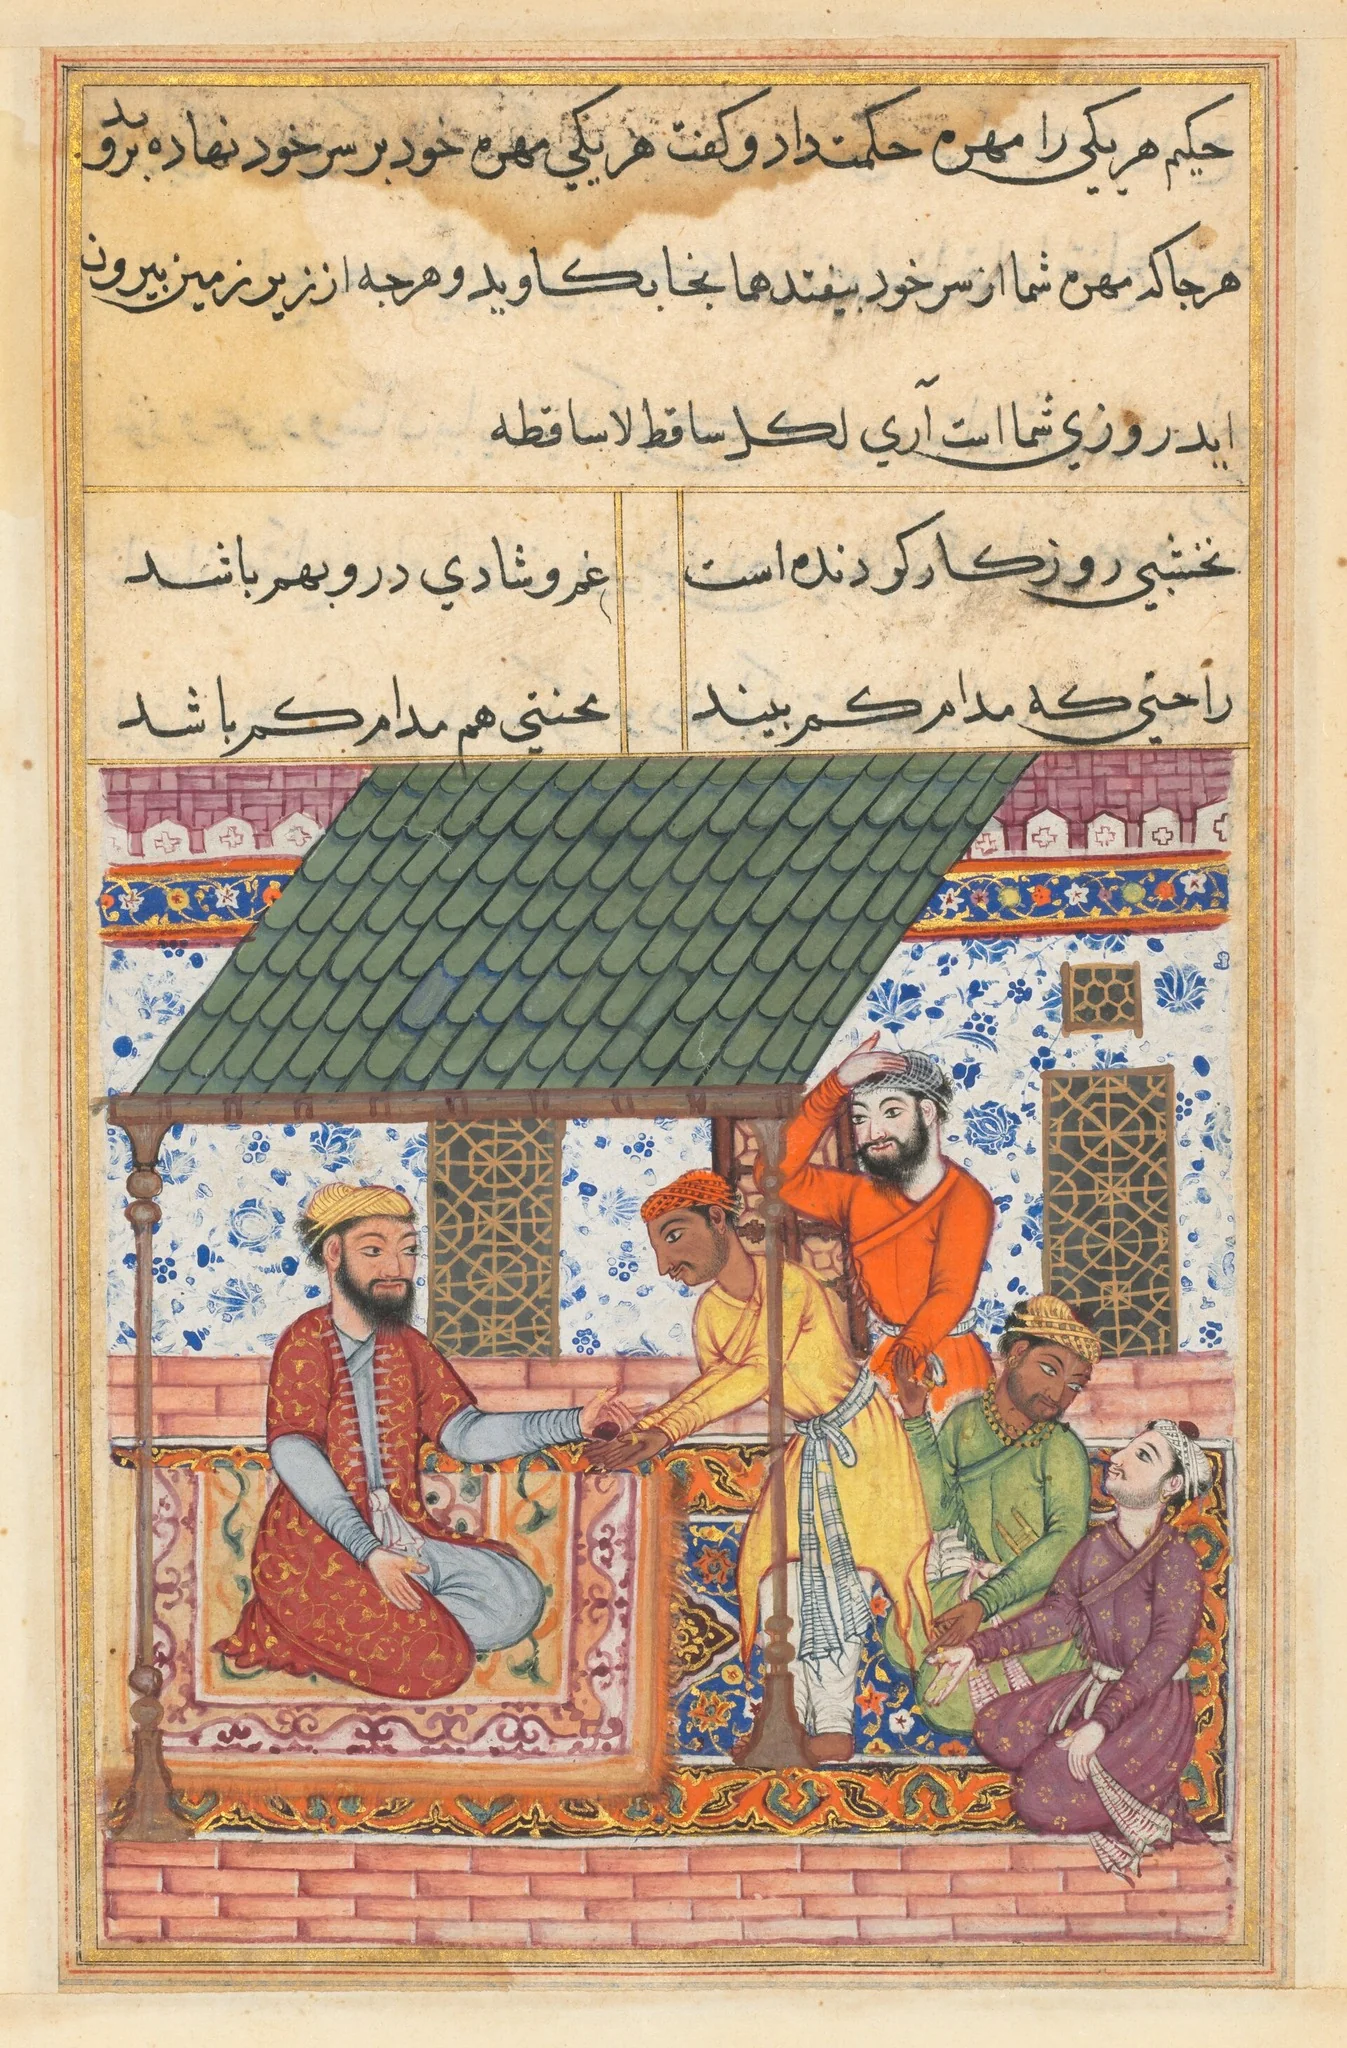 حکیم هر یکی را مهره حکمت داد و کفت هر یکی مهره خود بر سر خود نهاده بروید
هر جا که مهره شما از سر خود بیفتد همانجا بکاوید و هرچه از زیر زمین بیرون
اید روزی شما است آری لکل ساقط لاساقطه
نخشبی روزکار کردنده است غم و شادی درو بهم باشد
راحتی که مدام کم بیند محنتی هم مدام کم باشد